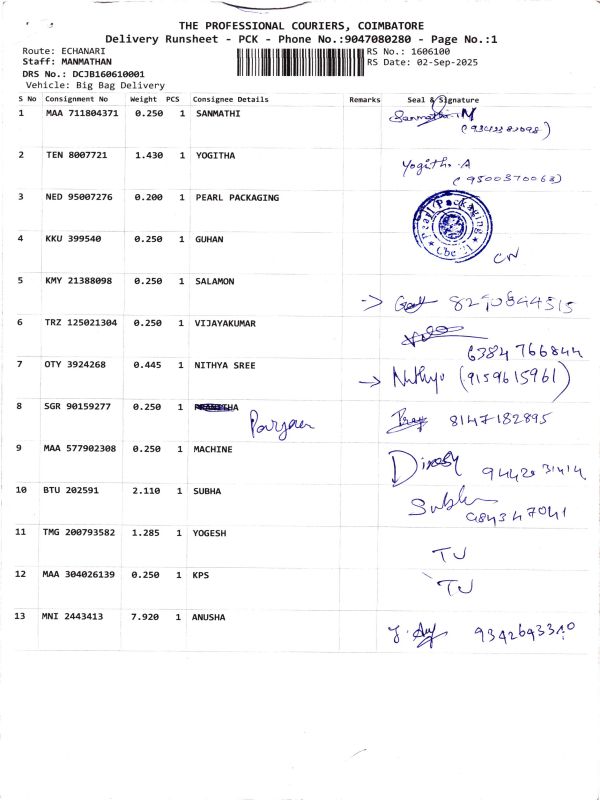 THE PROFESSIONAL COURIERS, COIMBATORE
Delivery Runsheet - PCK - Phone No.:9047080280 - Page No.:1
Route: ECHANARI
RS No.: 1606100
Staff: MANMATHAN
RS Date: 02-Sep-2025
DRS No.: DCJB160610001
Vehicle: Big Bag Delivery
S No Consignment No Weight PCS Consignee Details Remarks Seal & Signature
1 MAA 711804371 0.250 1 SANMATHI Sanmathi.M
2 TEN 8007721 1.430 1 YOGITHA Yogitha.A
(9500370063)
3 NED 95007276 0.200 1 PEARL PACKAGING Pearl Packaging Cbe
4 KKU 399540 0.250 1 GUHAN
5 KMY 21388098 0.250 1 SALAMON
6 TRZ 125021304 0.250 1 VIJAYAKUMAR
6384 766844
7 OTY 3924268 0.445 1 NITHYA SREE Nithya (9159615961)
8 SGR 90159277 0.250 1 8147182895
9 MAA 577902308 0.250 1 MACHINE Dinesh
10 BTU 202591 2.110 1 SUBHA Subha
984347041
11 TMG 200793582 1.285 1 YOGESH TJ
12 MAA 304026139 0.250 1 KPS TJ
13 MNI 2443413 7.920 1 ANUSHA